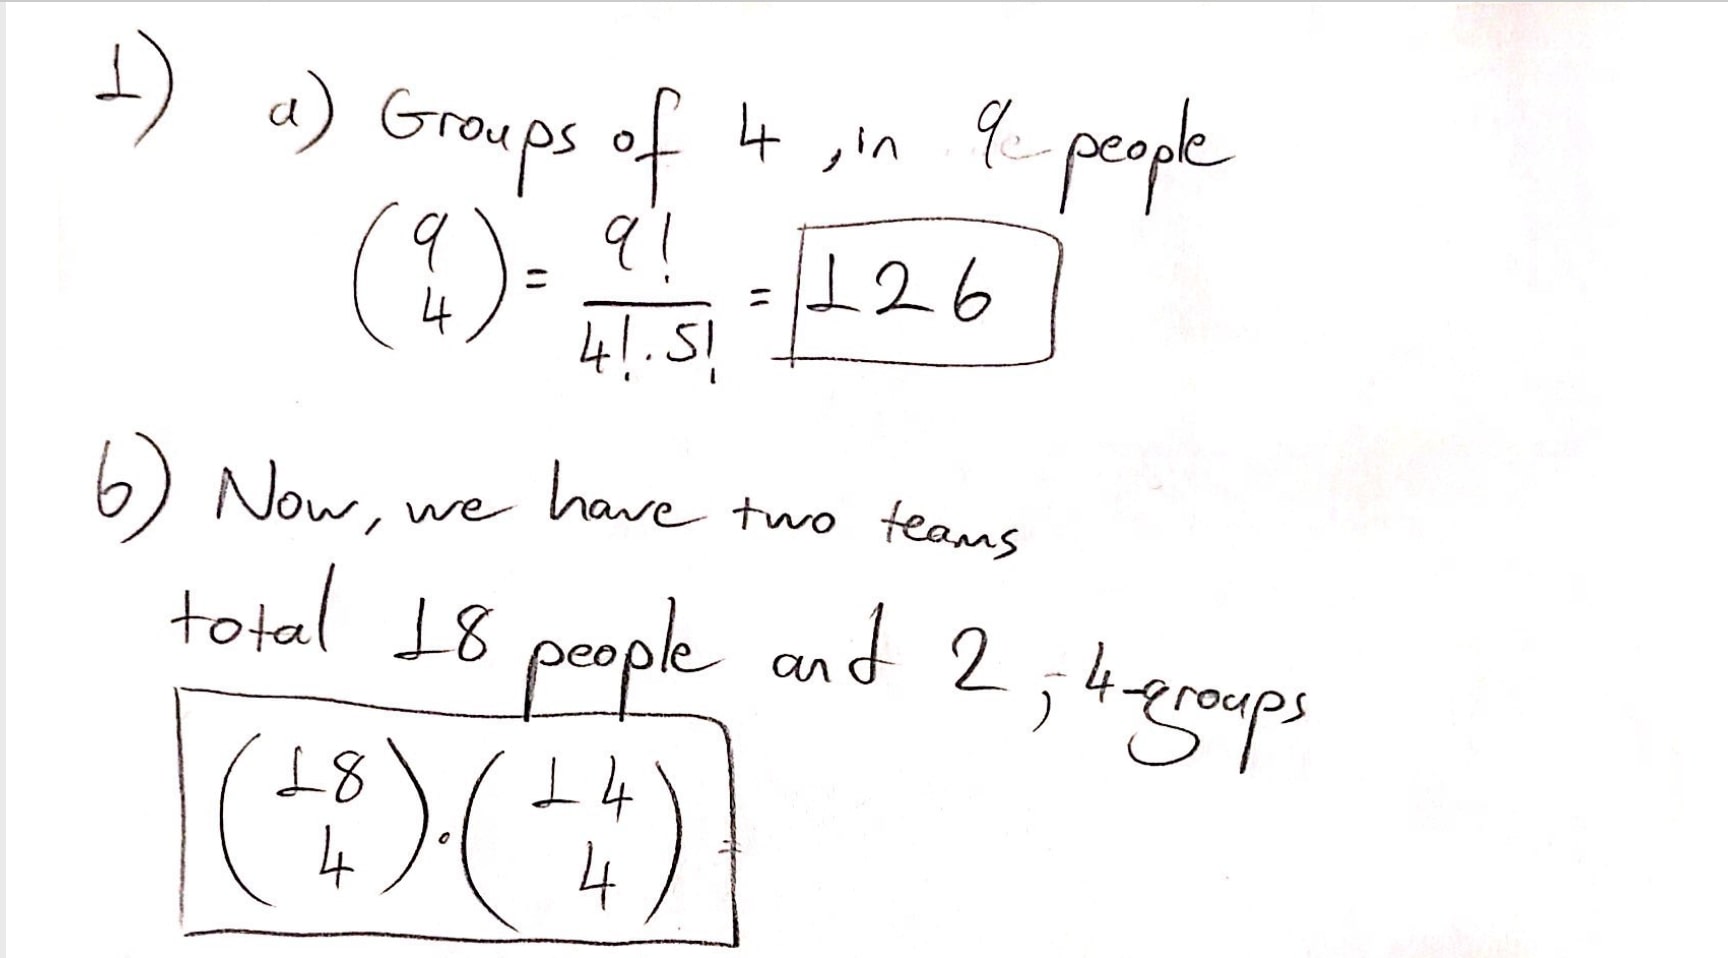 1) a) Groups of 4, in 9 people
(9 4) = 9! / 4!.5! = 126
b) Now, we have two teams
total 18 people and 2, 4-groups
(18 4).(14 4) =